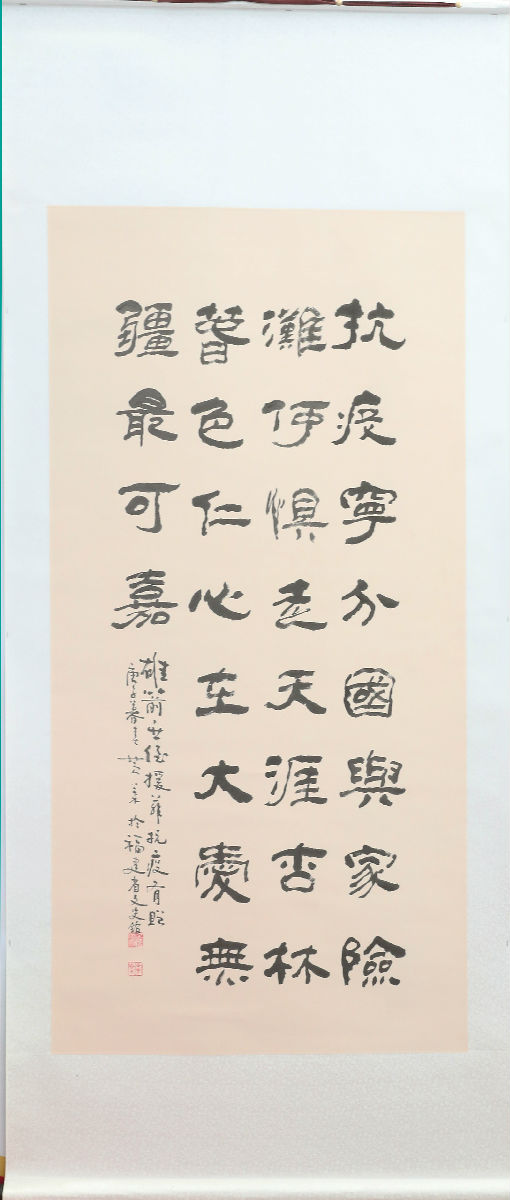 抗疫寧分國與家險
灘何懼走天涯杏林
萅色仁心在大愛無
疆最可嘉
雄箭世侄援菲抗疫有
庚子春於福建省文史館